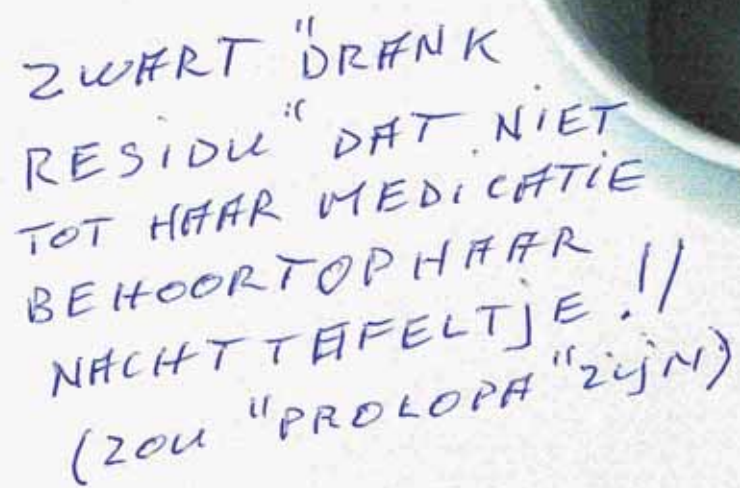 ZWART "DRANK
RESIDU" DAT NIET
TOT HAAR MEDICATIE
BEHOORT OP HAAR
NACHTTAFELTJE.!!
(ZOU "PROLOPA" ZIJN)